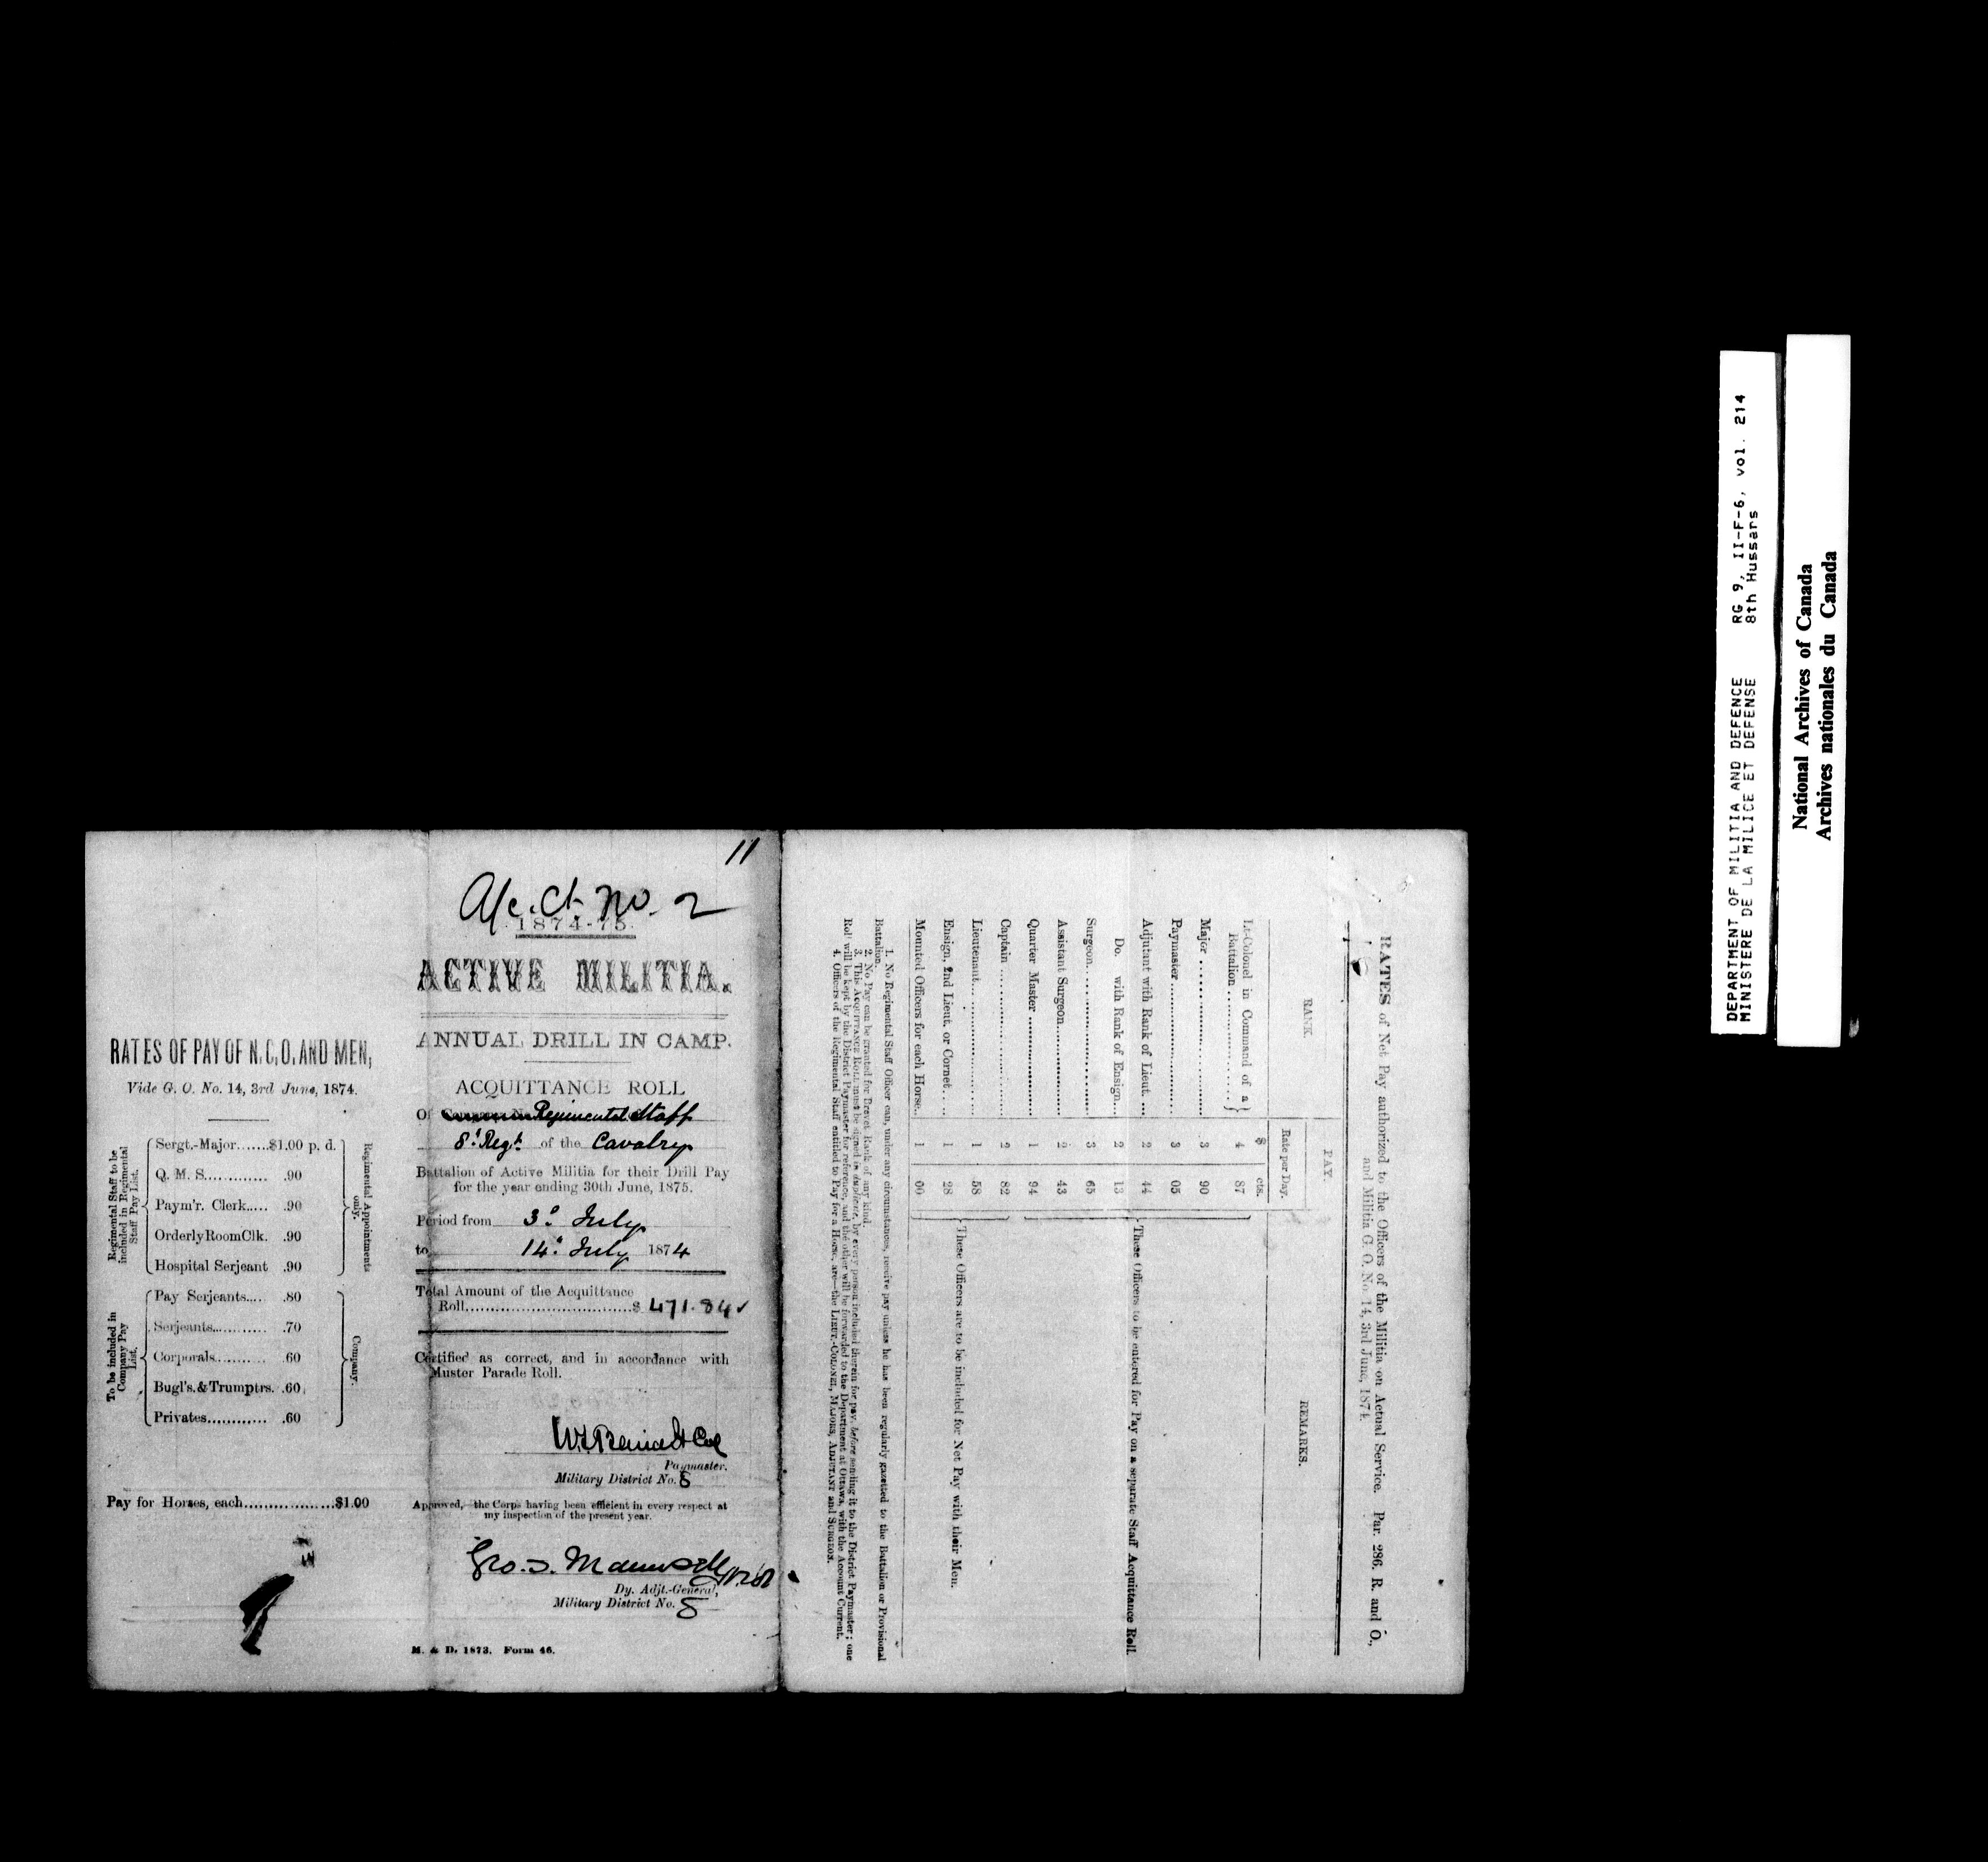 RATES OF PAY OF N.C.O. AND MEN,
Vide G. O. No. 14, 3rd June, 1874.
Regimental Staff to be included in Regimental Staff Pay List.
Sergt.-Major......$1.00 p. d.
Q. M. S............. .90
Paym'r. Clerk..... .90
OrderlyRoomClk. .90
Hospital Serjeant .90
Regimental Appointments only.
To be included in Company Pay List.
Pay Serjeants.... .80
Serjeants........... .70
Corporals.......... .60
Bugl's.&Trumptrs. .60
Privates............ .60
Company.
Pay for Horses, each..................$1.00
11
A/c. Ct. No. 2
1874-75.
ACTIVE MILITIA.
ANNUAL DRILL IN CAMP.
ACQUITTANCE ROLL
Of Regimental Staff
8' Regt. of the Cavalry
Battalion of Active Militia for their Drill Pay
for the year ending 30th June, 1875.
Period from 3d July
to 14th July 1874
Total Amount of the Acquittance
Roll.................................$ 471.84 ✓
Certified as correct, and in accordance with
Muster Parade Roll.
Paymaster.
Military District No. 8
Approved, the Corps having been efficient in every respect at
my inspection of the present year.
Geo. J. Maunsell
Dy. Adjt.-General,
Military District No. 8
M. & D. 1873. Form 46.
RATES of Net Pay authorized to the Officers of the Militia on Actual Service. Par. 286. R. and O.,
and Militia G. O. No. 14, 3rd June, 1874.
RANK. PAY. REMARKS.
Rate per Day.
$ cts.
Lt-Colonel in Command of a Battalion ................ 4 87
Major ................ 3 90
Paymaster................ 3 05
Adjutant with Rank of Lieut. ... 2 44
Do. with Rank of Ensign... 2 13
Surgeon................ 3 65
Assistant Surgeon................ 2 43
Quarter Master ................ 1 94
These Officers to be entered for Pay on a separate Staff Acquittance Roll.
Captain ................ 2 82
Lieutenant................ 1 58
Ensign, 2nd Lieut. or Cornet.... 1 28
These Officers are to be included for Net Pay with their Men.
Mounted Officers for each Horse.. 1 00
1. No Regimental Staff Officer can, under any circumstances, receive pay unless he has been regularly gazetted to the Battalion or Provisional
Battalion.
2. No Pay can be granted for Brevet Rank of any kind.
3. This ACQUITTANCE ROLL must be signed in duplicate, by every person included therein for pay, before sending it to the District Paymaster; one
Roll will be kept by the District Paymaster for reference, and the other will be forwarded to the Department at Ottawa, with the Account Current.
4. Officers of the Regimental Staff entitled to Pay for a Horse, are—the LIEUT.-COLONEL, MAJORS, ADJUTANT and SURGEON.
DEPARTMENT OF MILITIA AND DEFENCE RG 9, II-F-6, vol. 214
MINISTERE DE LA MILICE ET DEFENSE 8th Hussars
National Archives of Canada
Archives nationales du Canada